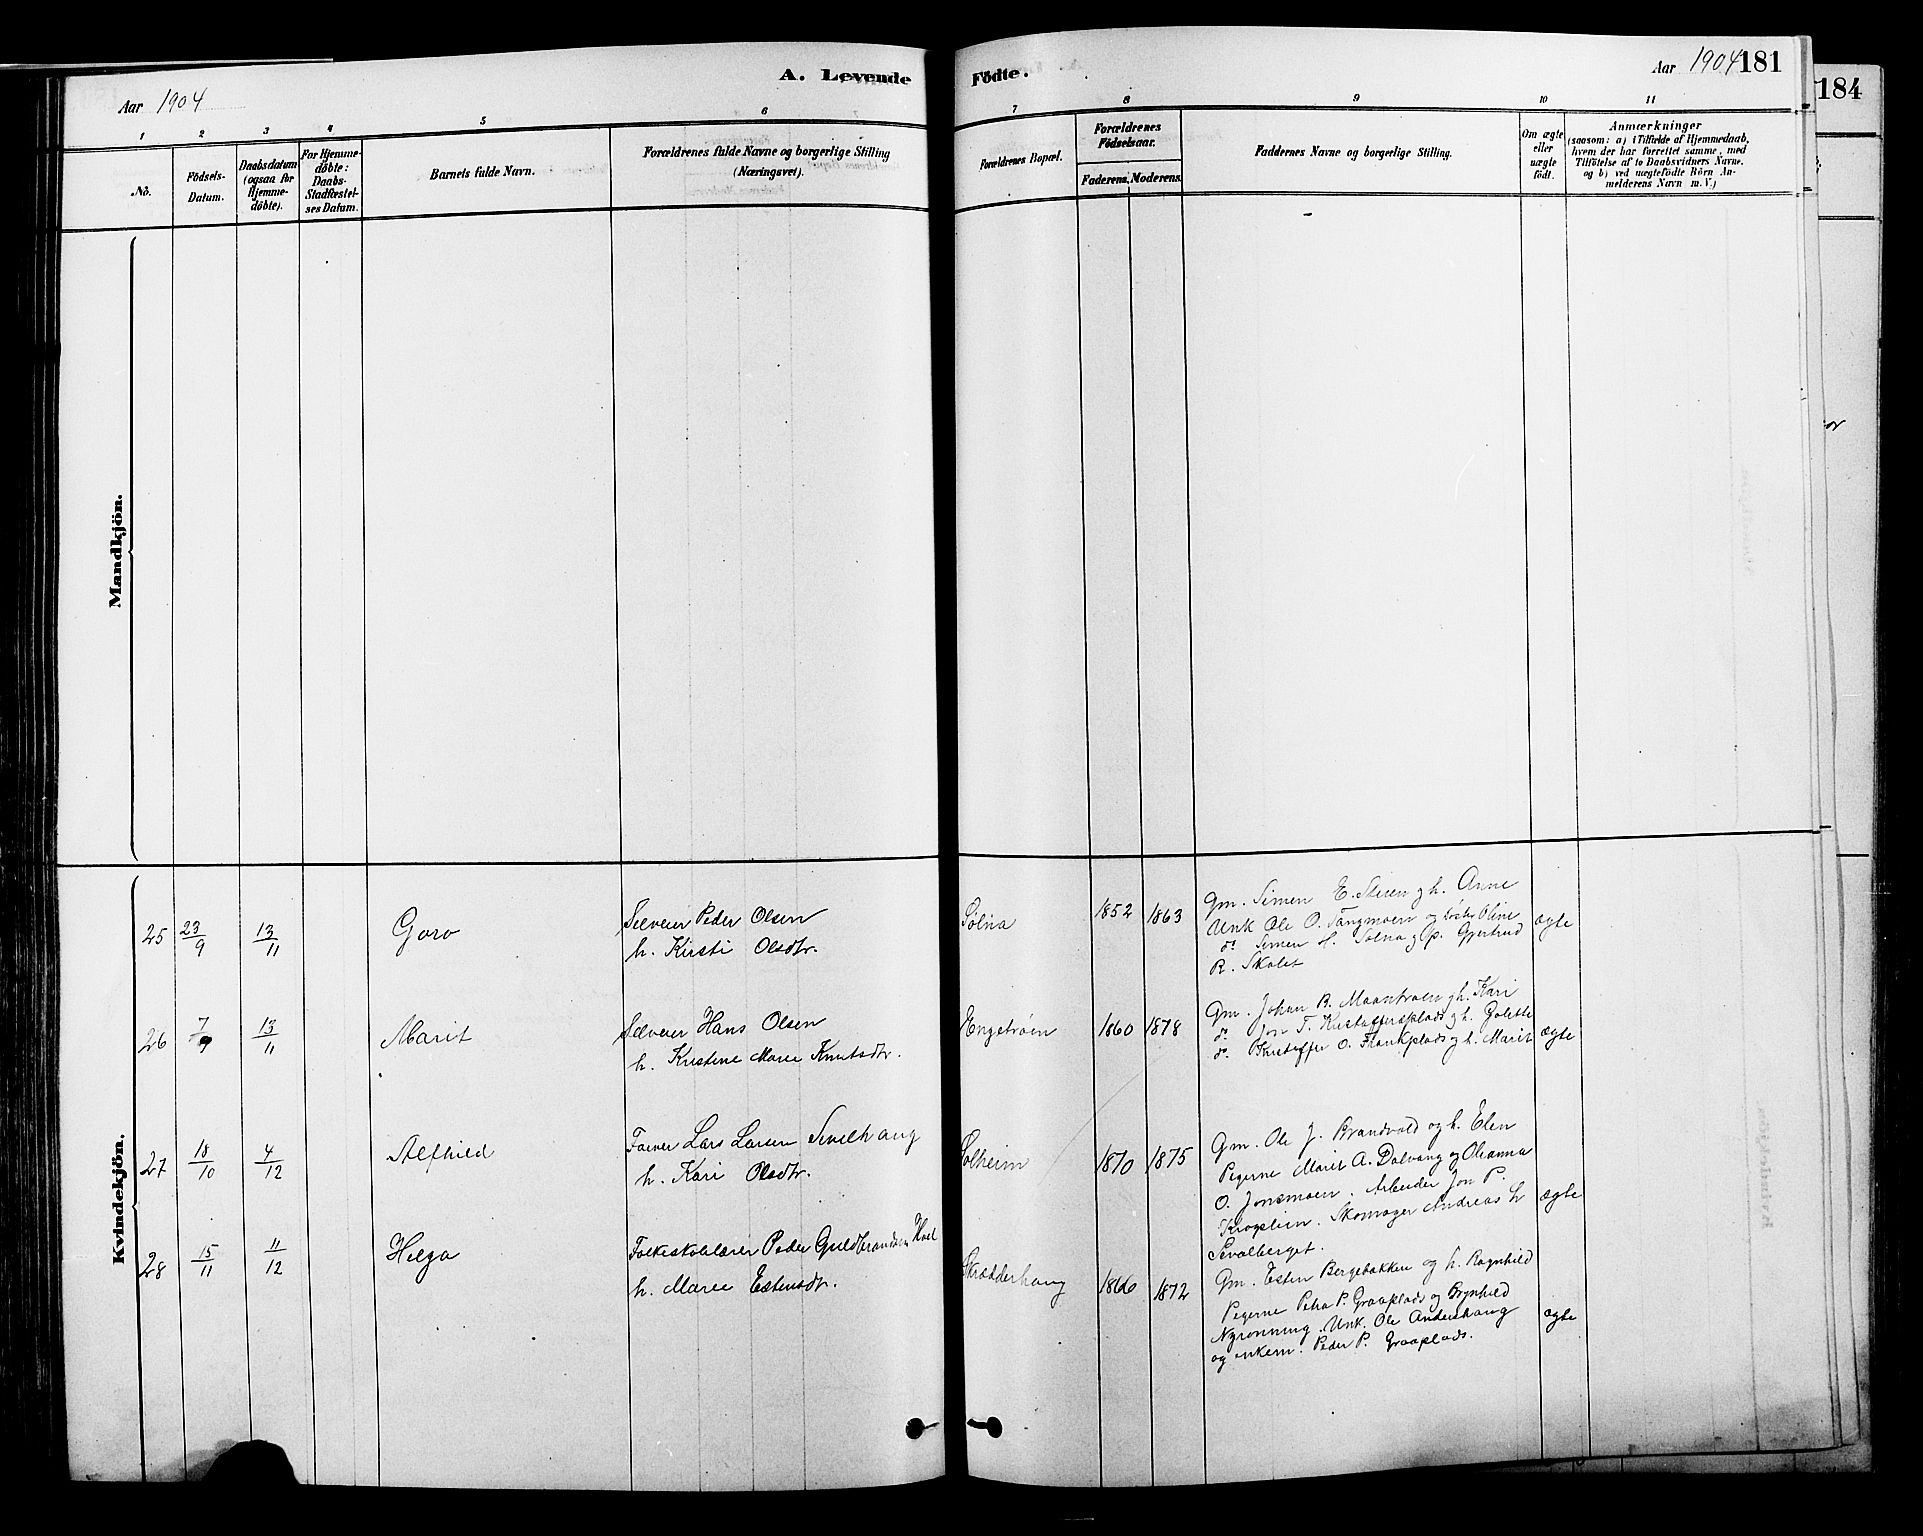 A. Levende Födte.
Aar 1904
Aar 1904 181
184
1 2 3 4 5 6 7 8 9 10 11
No.
Födsels-
Datum.
Daabsdatum
(ogsaa for
Hjemme-
döbte).
For Hjemme-
döbte:
Daabs-
Stadfæstel-
ses Datum.
Barnets fulde Navn.
Forældrenes fulde Navne og borgerlige Stilling
(Næringsvei).
Forældrenes Bopæl.
Forældrenes
Födselsaar.
Faderens. Moderens.
Faddernes Navne og borgerlige Stilling.
Om ægte
eller
uægte
födt.
Anmærkninger
(saasom: a) i Tilfælde af Hjemmedaab,
hvem der har forrettet samme, med
Tilföielse af to Daabsvidners Navne.
og b) ved uægtefödte Börn An-
melderens Navn m. V.)
Mandkjön.
Kvindekjön.
25 23/9 13/11 Goro
Selveier Peder Olsen
h. Kirsti Olsdtr.
Sölna 1852 1863
Gm. Simen E. Steien og h. Anne
Unk Ole O. Tangmoen og Oline
do. Simen H. Sölna og Gjertrud
R. Skolet
ægte
26 7/9 13/11 Marit
Selveier Hans Olsen
h. Kristine Marie Knutsdtr.
Engetröen 1860 1878
Gm. Johan B. Moantroen og h. Kari
do. Jon T. Kristoffersplads og h. Golette
do. Kristoffer O. Flankplads og h. Marit
ægte
27 18/10 4/12 Alfhild
Farver Lars Larsen Sivilhaug
h. Kari Olsdtr.
Solheim 1870 1875
Gm. Ole J. Brandvold og h. Elen
Pegerne Marit A. Dalvang og Oleanna
O. Jonsmoen. Arbeider Jon P.
Krogslien. Skomager Andreas L
Sevalberget.
ægte
28 15/11 11/12 Helga
Folkeskolelærer Peder Guldbrandsen Hoel
h. Marie Estensdtr.
Skrædderhaug 1866 1872
Gm. Esten Bergebakken og h. Ragnhild
Pegerne Petra P. Graaplads og Brynhild
Nyrönning. Unk. Ole Andershaug
og enkem. Peder P. Graaplads.
ægte